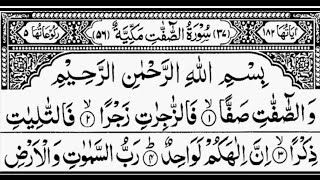 اٰیَاتُهَا ١٨٢ (٣٧) سُوْرَةُ الصّٰٓفّٰتِ مَكِّیَّةٌ (٥٦) رُكُوْعَاتُهَا ٥
بِسْمِ اللّٰهِ الرَّحْمٰنِ الرَّحِیْمِ
وَالصّٰٓفّٰتِ صَفًّا ۙ﴿١﴾ فَالزّٰجِرٰتِ زَجْرًا ۙ﴿٢﴾ فَالتّٰلِیٰتِ
ذِكْرًا ۙ﴿٣﴾ اِنَّ اِلٰهَكُمْ لَوَاحِدٌ ؕ﴿٤﴾ رَبُّ السَّمٰوٰتِ وَالْاَرْضِ